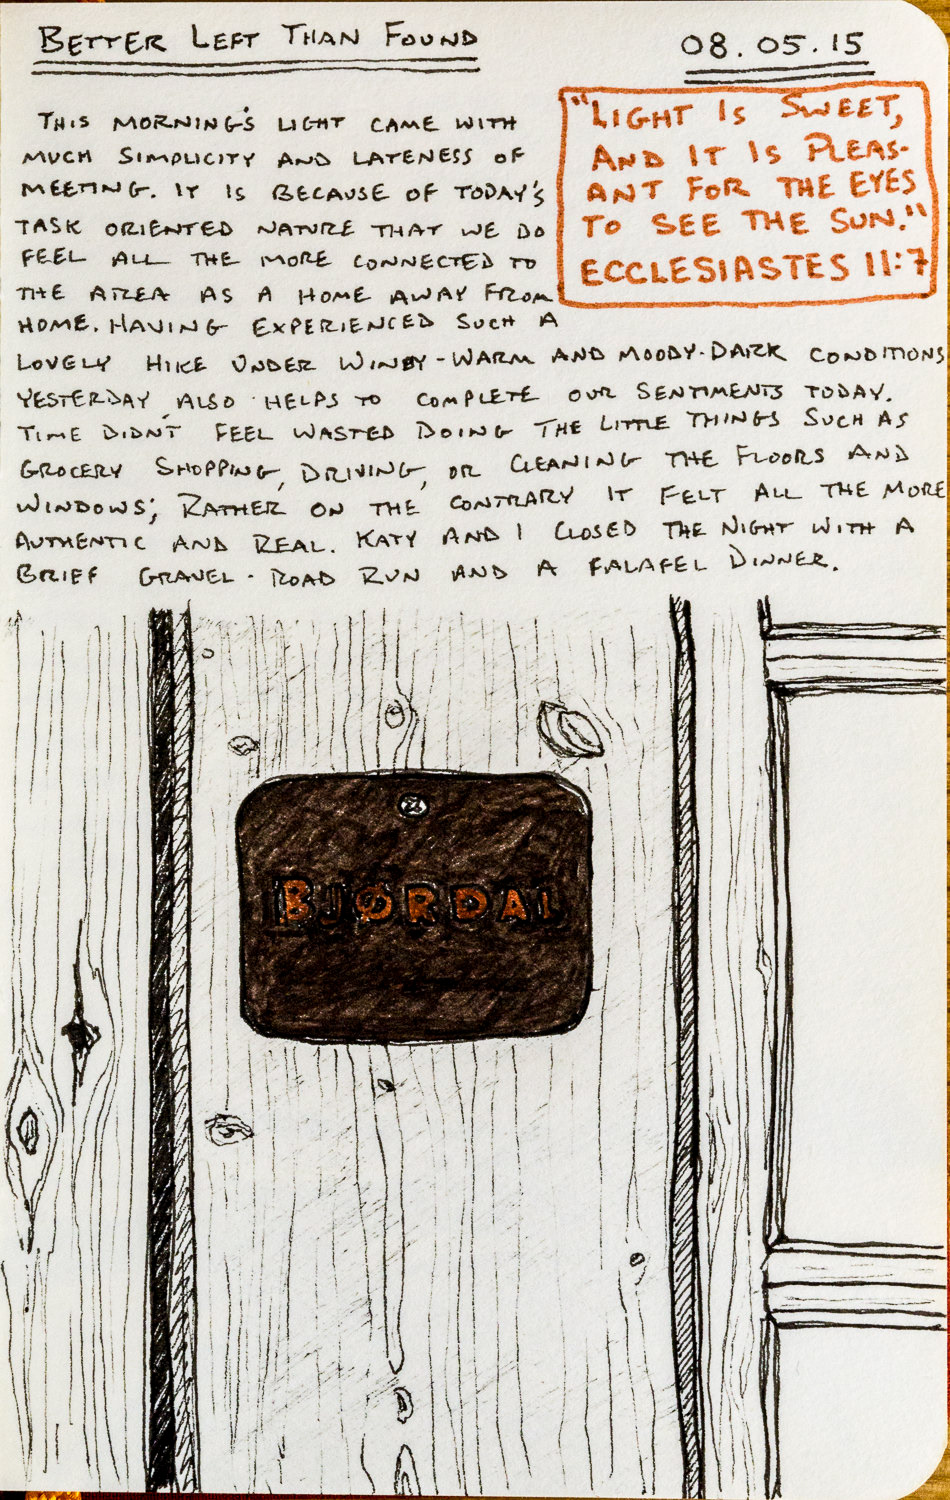 BETTER LEFT THAN FOUND
08.05.15
"LIGHT IS SWEET,
AND IT IS PLEAS-
ANT FOR THE EYES
TO SEE THE SUN."
ECCLESIASTES 11:7
THIS MORNING'S LIGHT CAME WITH
MUCH SIMPLICITY AND LATENESS OF
MEETING. IT IS BECAUSE OF TODAY'S
TASK ORIENTED NATURE THAT WE DO
FEEL ALL THE MORE CONNECTED TO
THE AREA AS A HOME AWAY FROM
HOME. HAVING EXPERIENCED SUCH A
LOVELY HIKE UNDER WINDY-WARM AND MOODY-DARK CONDITIONS
YESTERDAY ALSO HELPS TO COMPLETE OUR SENTIMENTS TODAY.
TIME DIDN'T FEEL WASTED DOING THE LITTLE THINGS SUCH AS
GROCERY SHOPPING, DRIVING, OR CLEANING THE FLOORS AND
WINDOWS; RATHER ON THE CONTRARY IT FELT ALL THE MORE
AUTHENTIC AND REAL. KATY AND I CLOSED THE NIGHT WITH A
BRIEF GRAVEL-ROAD RUN AND A FALAFEL DINNER.
BJØRDAL